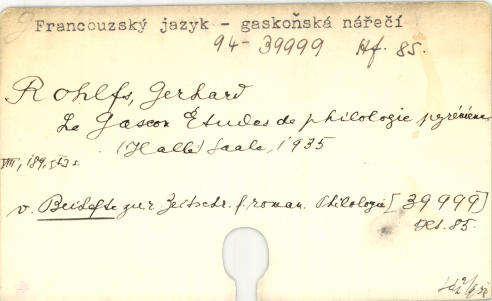 Francouzský jazyk - gaskoňská nářečí
94-39999 Hf. 85.
Rohlfs, Gerhard
Le Gascon Études de philologie pyrénienne
(Halle) Saale, 1935
VIII, 189, [1] s.
v. Beihefte zur Zeitschr. f. roman. Philologie [39999]
Het. 85.